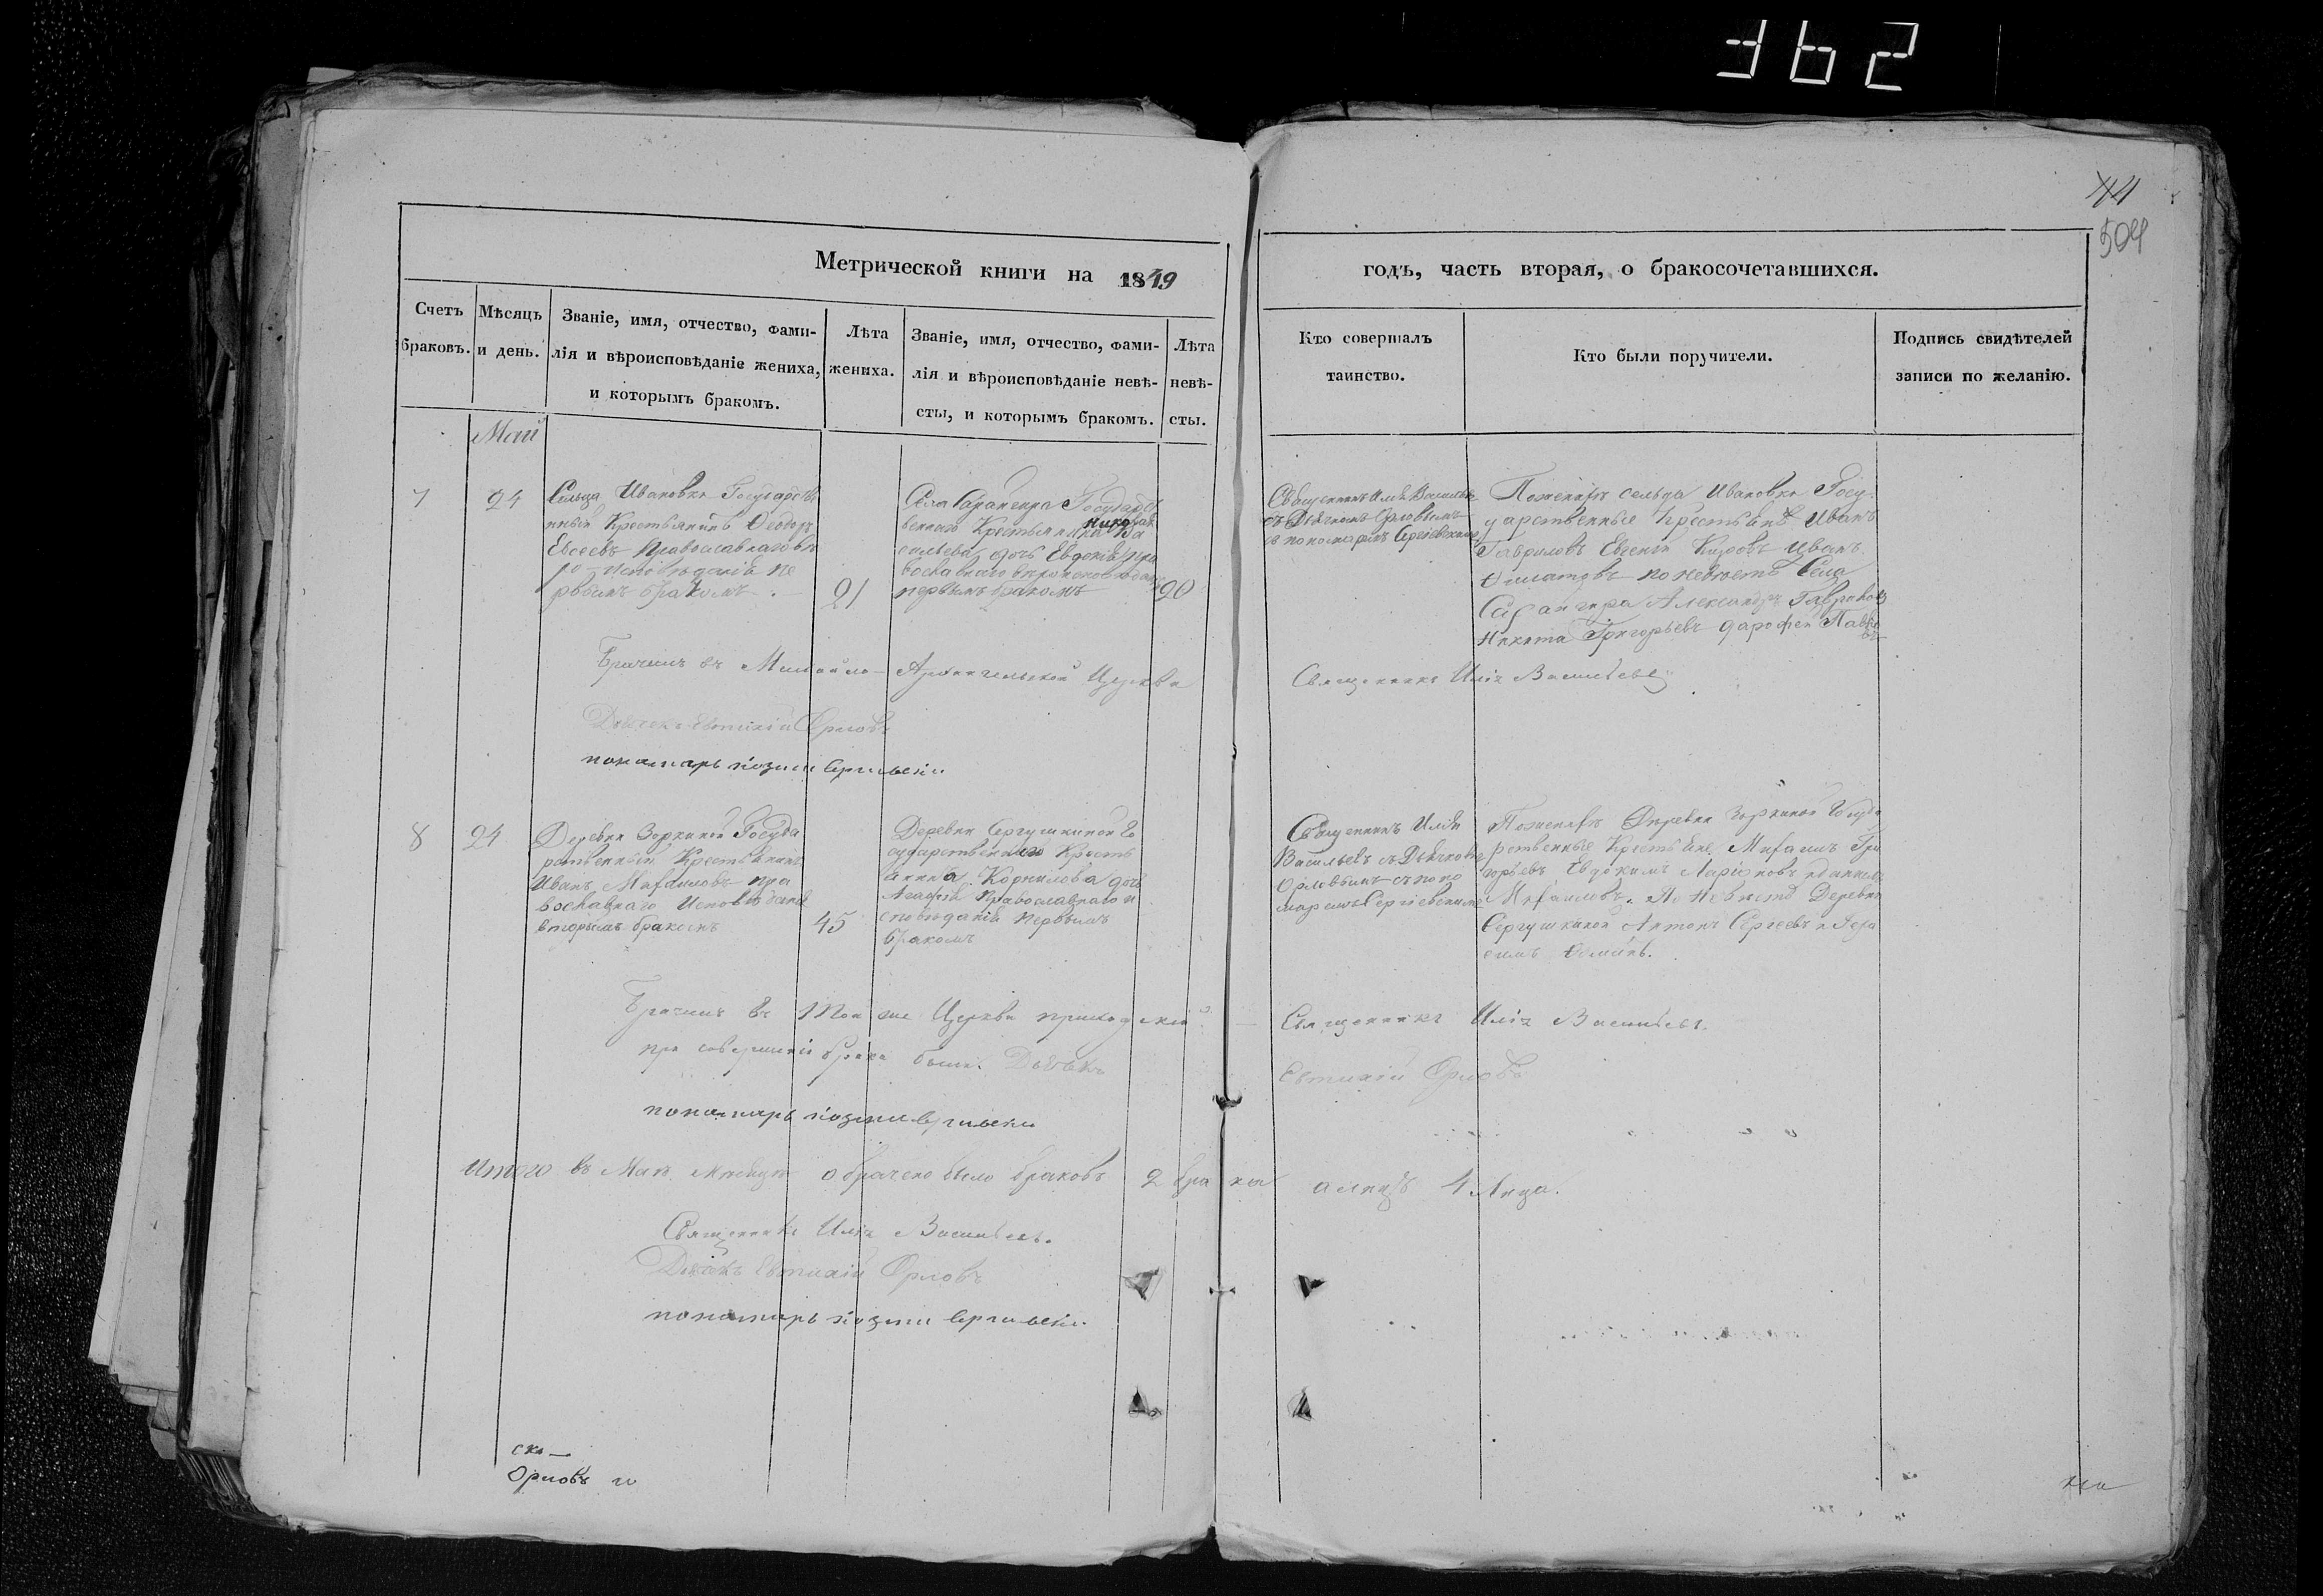 362
44
504
Метрической книги на 1849
годъ, часть вторая, о бракосочетавшихся.
Счетъ браковъ.
Мѣсяцъ и день.
Званіе, имя, отчество, фами-
лія и вѣроисповѣданіе жениха,
и которымъ бракомъ.
Лѣта
жениха.
Званіе, имя, отчество, фами-
лія и вѣроисповѣданіе невѣ-
сты, и которымъ бракомъ.
Лѣта
невѣ-
сты.
Кто совершалъ
таинство.
Кто были поручители.
Подпись свидѣтелей
записи по желанію.
Май
7
24
Сельца Ивановки Государстве
нный Крестьянинъ Ѳеодоръ
Евсеевъ Православнаго вѣ
ро-исповѣданія пе
рвымъ бракомъ.
21
Села Государст
веннаго Крестьянина
сильева дочь Евдокія пра
вославнаго вѣроисповѣданія
первымъ бракомъ
20
Священникъ Илія Васильев
съ Дьячкомъ Орловымъ
и пономаремъ Сергіевскимъ
По женихѣ сельца Ивановки Госу
дарственные Крестьяне Иванъ
Гавриловъ Евгеній Иванъ
Филатовъ по невѣстѣ Села
Александръ Гавриловъ
Никита Григорьевъ Дарофей Павло
въ
Браченъ въ Михайло-Архангельской Церкви
Священникъ Илія Васильевъ
Дьячекъ Евтихій Орловъ
пономарь Козма Сергиевски
8
24
Деревни Зоркиной Госуда
рственный Крестьянинъ
Иванъ Михаиловъ пра
вославнаго Исповѣданія
вторымъ бракомъ
45
Деревни Сергушкиной Го
сударственнаго Кресть
янина Корнилова дочь
Агафія Православнаго и
сповѣданія первымъ
бракомъ
Священникъ Илія
Васильевъ съ Дьячкомъ
Орловымъ съ поно
маремъ Сергіевскимъ
По женихѣ Деревни Зоркиной Госуда
рственные Крестьяне Михаилъ Гри
горьевъ Евдокимъ Ларіоновъ и Даниилъ
Михаиловъ. По Невѣстѣ Деревни
Сергушкиной Антонъ Сергеевъ и Гера
симъ
Браченъ въ той же Церкви приходской
Священникъ Илія Васильевъ.
при совершеніи брака были: Дьячекъ
Евтихій Орловъ
пономарь Козма Сергиевски
Итого въ Маѣ мѣсяцѣ обрачено было браковъ 2 брака а лицъ 4 Лица.
Священникъ Илія Васильевъ.
Дьячекъ Евтихій Орловъ
пономарь Козма Сергиевски.
ска—
Орловъ и